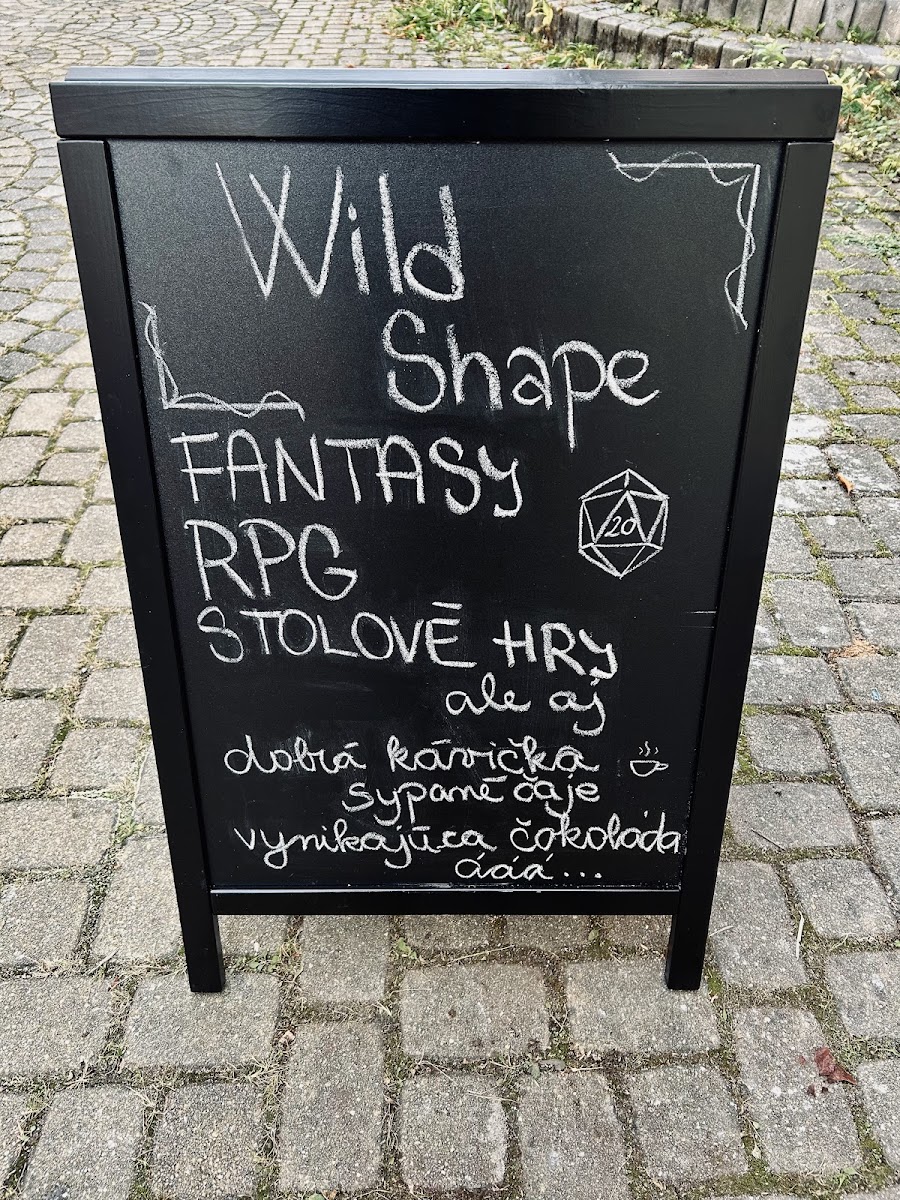 Wild
Shape
FANTASY
RPG
20
STOLOVÉ HRY
ale aj
dobrá kávička
sypané čaje
vynikajúca čokoláda
ááá...